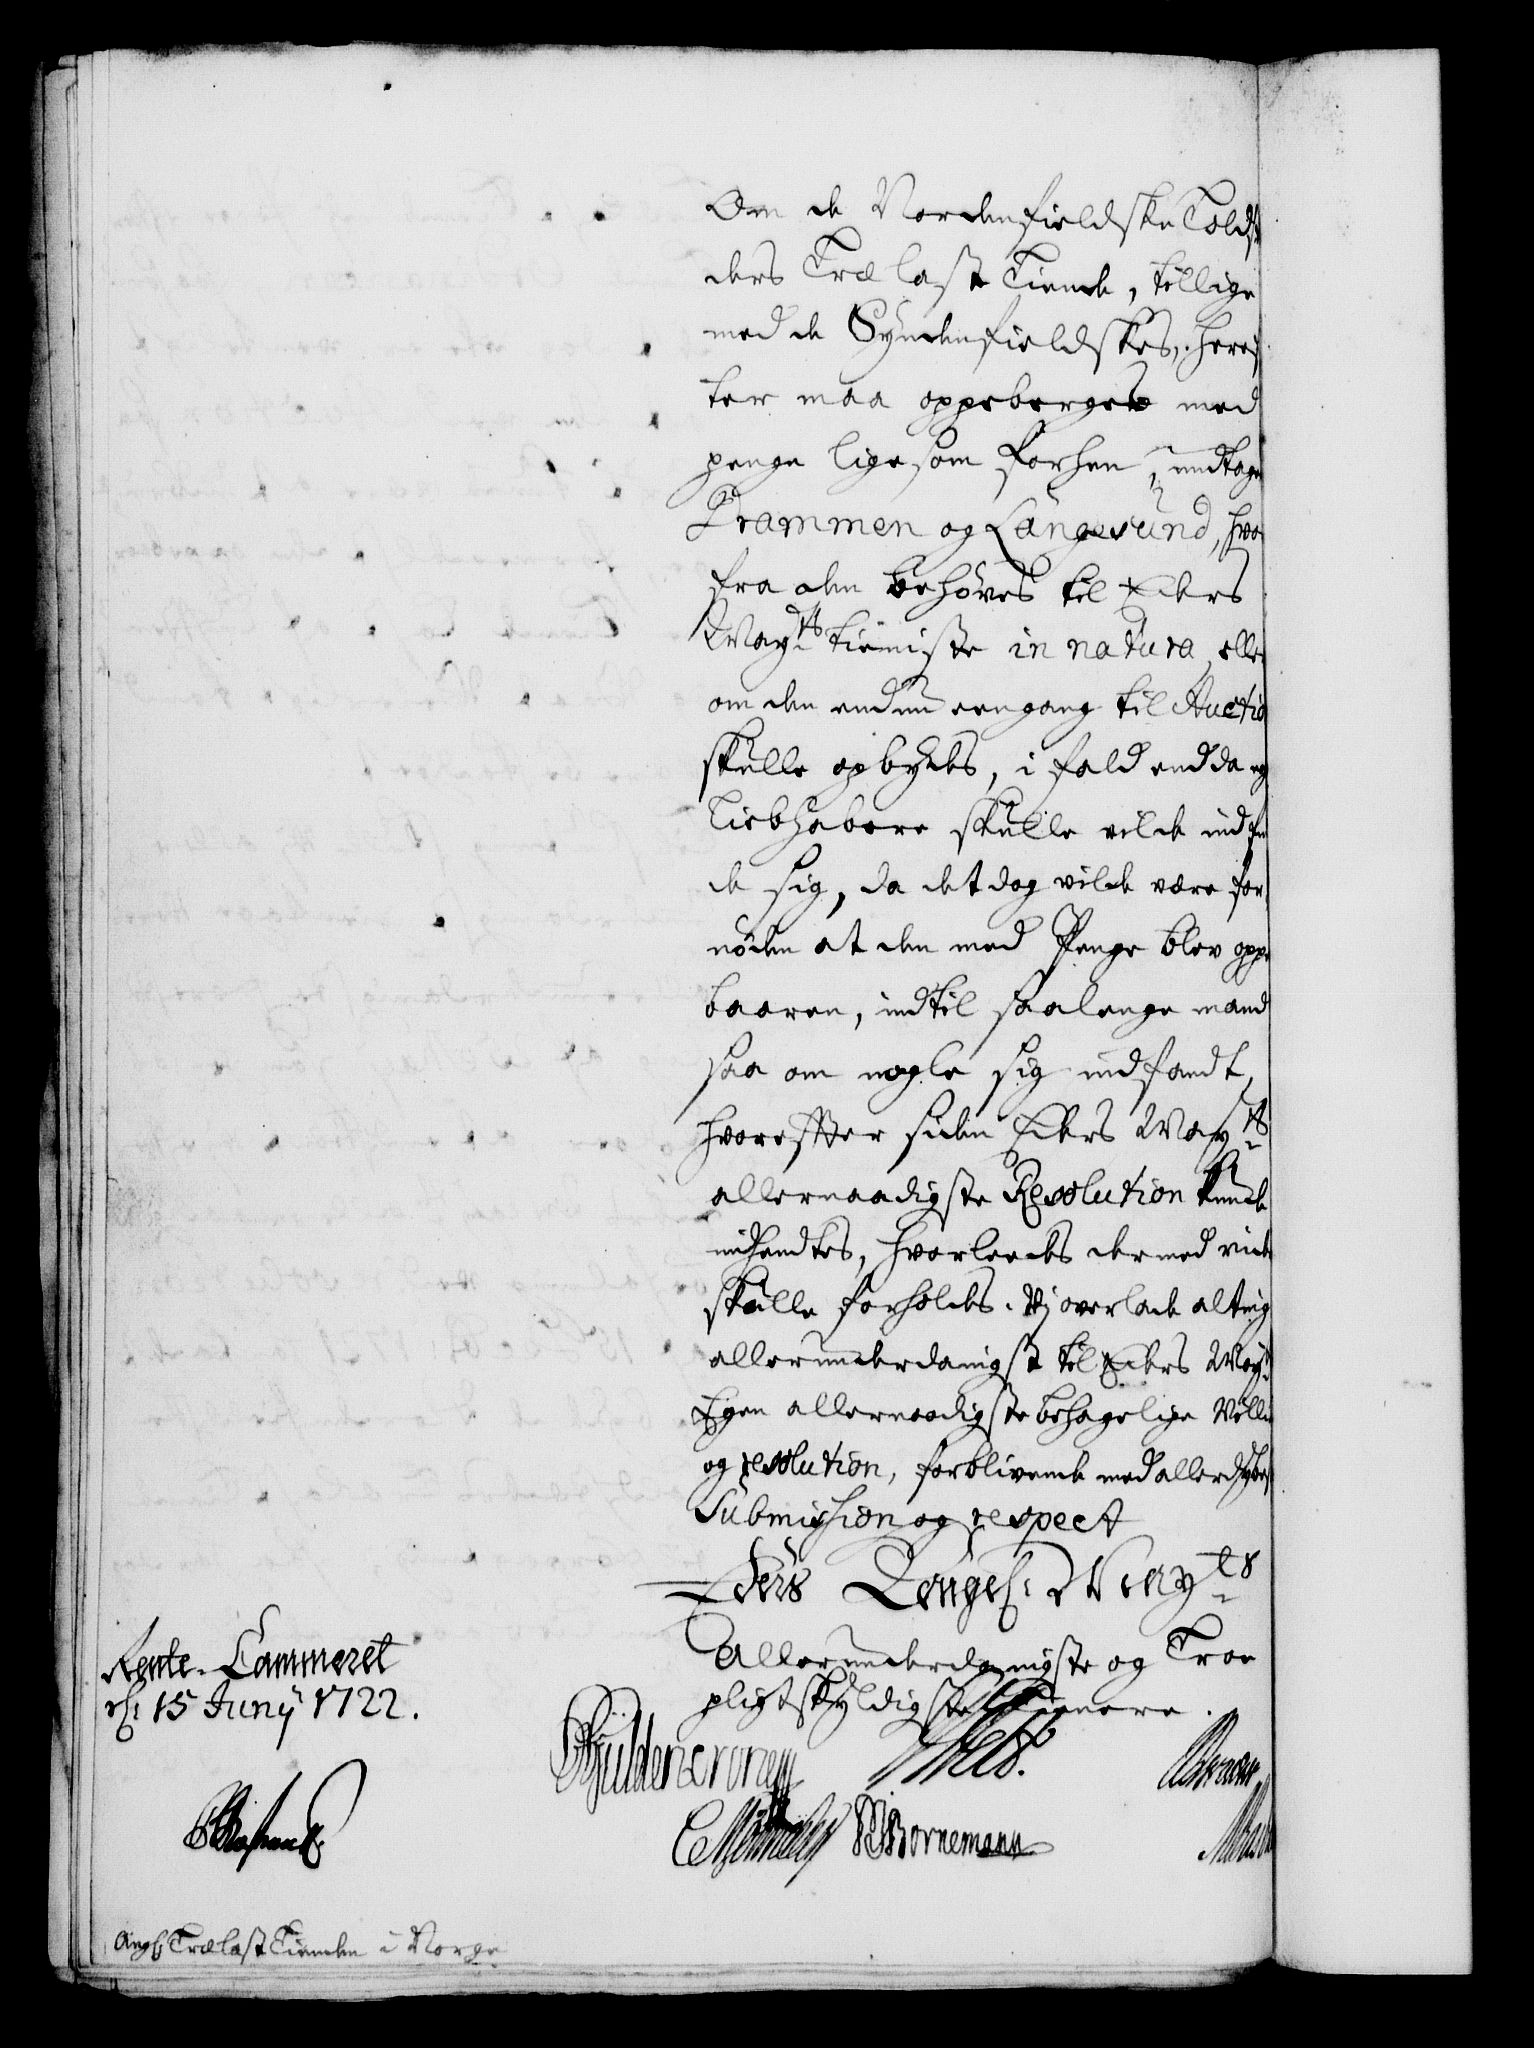 Om de Nordenfieldske Toldst
ders Trælast Tiende, tillige
med de Syndenfieldskes, heref
ter maa oppeberges med
penge ligesom forhen, undtagen
Drammen og Langesund, hvor
fra den behøves til Eders
Mayts tieniste in natura, eller
om den endnu eengang til Auctio
skulle opbydes, i fald endda ey
Liebhabere skulle vilde indfin
de sig, da det dog vilde være for
nøden at den med Penge blev oppe
baaren, indtil saalenge mand
saa om nogle sig indfandt,
hvorefter siden Eders Mayts
allernaadigste Resolution kunde
indhendtes, hvorleedes dermed videre
skulle forholdes. Vj overlade alting
allerunderdanigst til Eders Mayts
Egen allernaadigste behagelige Villie
og resolution, forblivende med allerdybest
Submission og respect
Eders Kongel: Mayts
Allerunderdanigste og Troe
pligtskyldigste Tienere.
Rente-Cammeret
d: 15 Junÿ 1722.
Güldencrone
WBornemann
Ang: Trælast Tienden i Norge